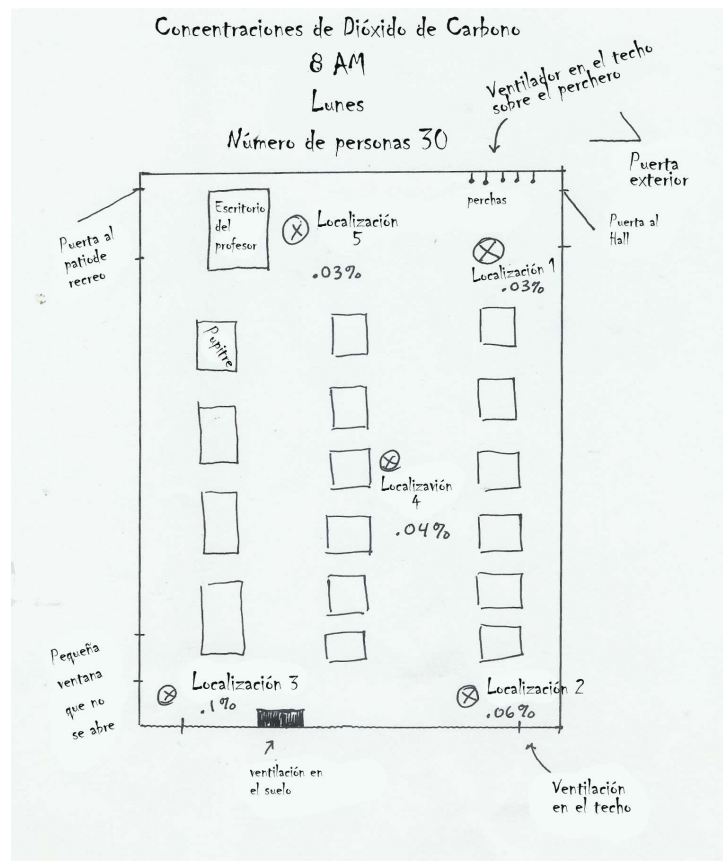 Concentraciones de Dióxido de Carbono
8 AM
Lunes
Número de personas 30
Ventilador en el techo
sobre el perchero
Puerta
exterior
perchas
Puerta al
Hall
Puerta al
patiode
recreo
Escritorio
del
profesor
Localización
5
.03%
Localización 1
.03%
Pupitre
Localizavión
4
.04%
Pequeña
ventana
que no
se abre
Localización 3
.1%
Localización 2
.06%
ventilación en
el suelo
Ventilación
en el techo